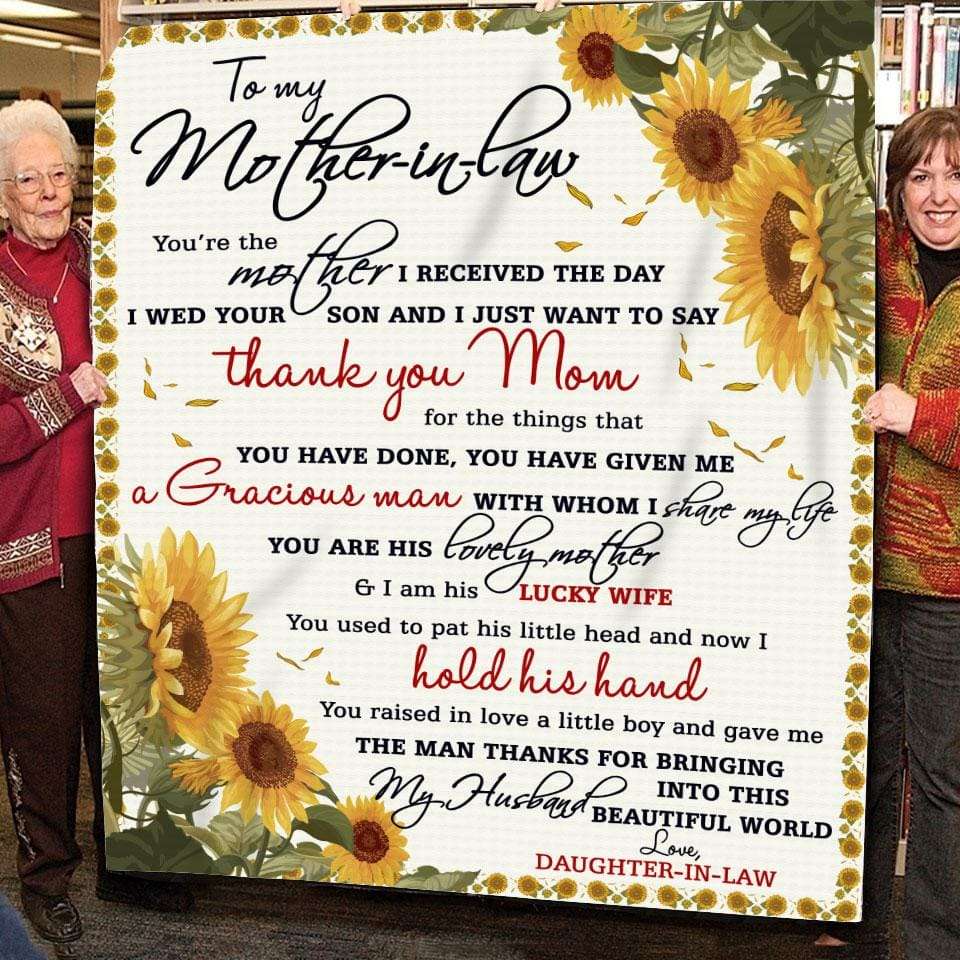 To my
Mother-in-law
You're the
mother I RECEIVED THE DAY
I WED YOUR SON AND I JUST WANT TO SAY
thank you Mom
for the things that
YOU HAVE DONE, YOU HAVE GIVEN ME
a Gracious man WITH WHOM I share my life
YOU ARE HIS lovely mother
& I am his LUCKY WIFE
You used to pat his little head and now I
hold his hand
You raised in love a little boy and gave me
THE MAN THANKS FOR BRINGING
My Husband INTO THIS
BEAUTIFUL WORLD
Love,
DAUGHTER-IN-LAW